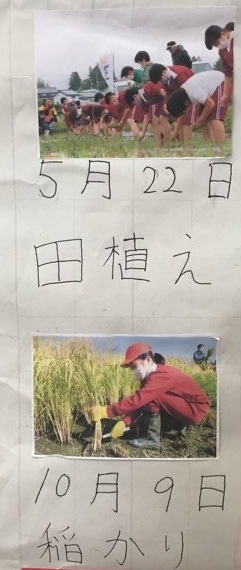 5月22日
田植え
10月9日
稲かり